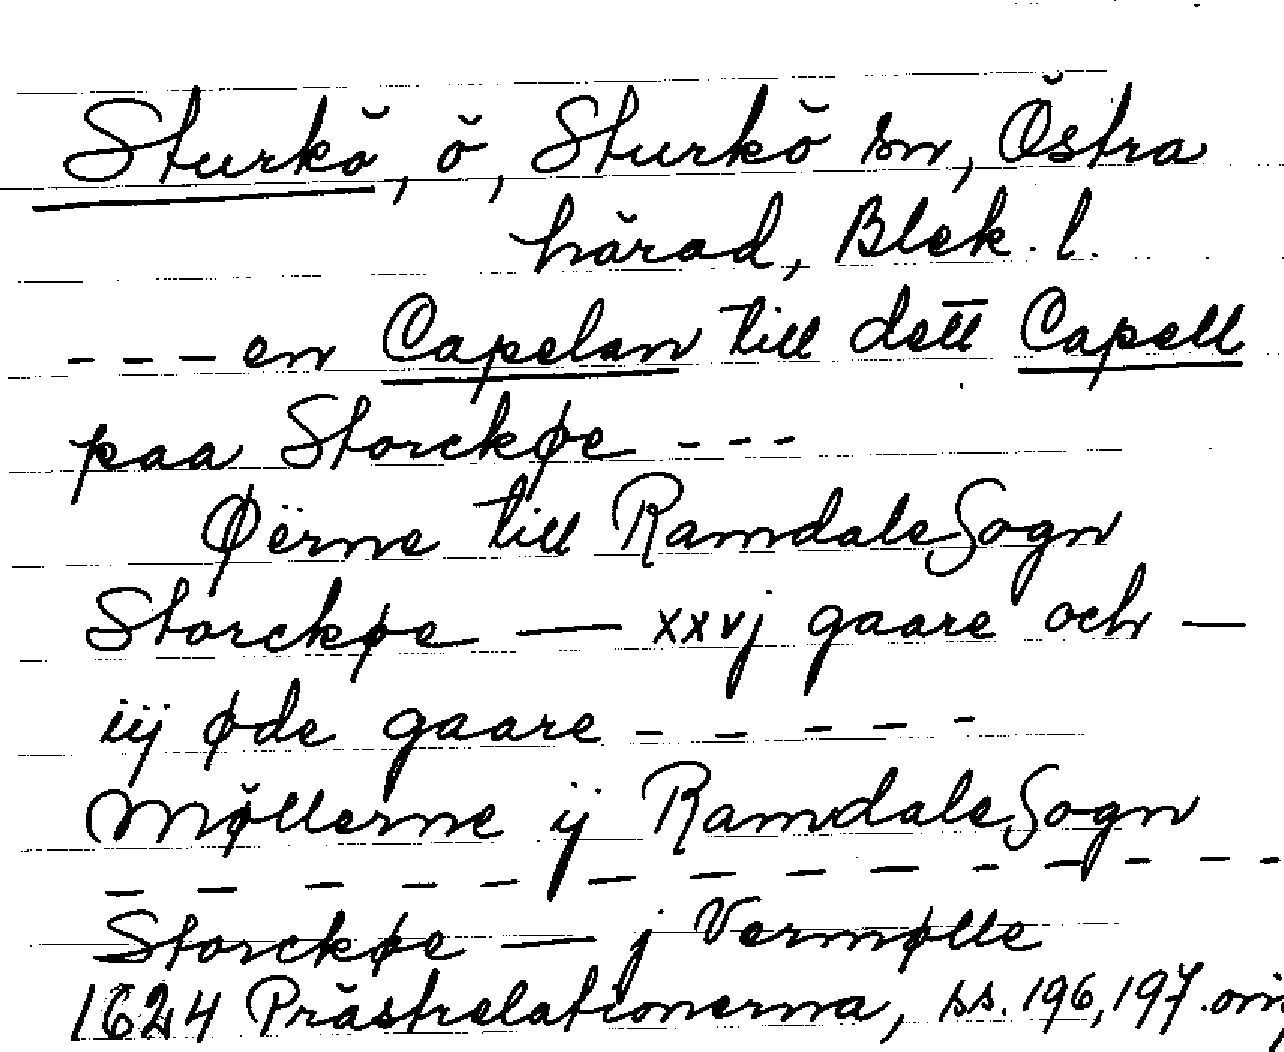 Sturkö, ö, Sturkö sn, Östra
härad, Blek. l.
- - - en Capelan till dett Capell
paa Storckøe - - -
Øërne till Ramdale Sogn
Storckøe — xxvj gaare och —
iij øde gaare - - - - -
Møllerne ij Ramdale Sogn
- - - - - - - - - - - - - -
Storckøe — j Vermølle
1624 Prästrelationerna, ss. 196, 197.